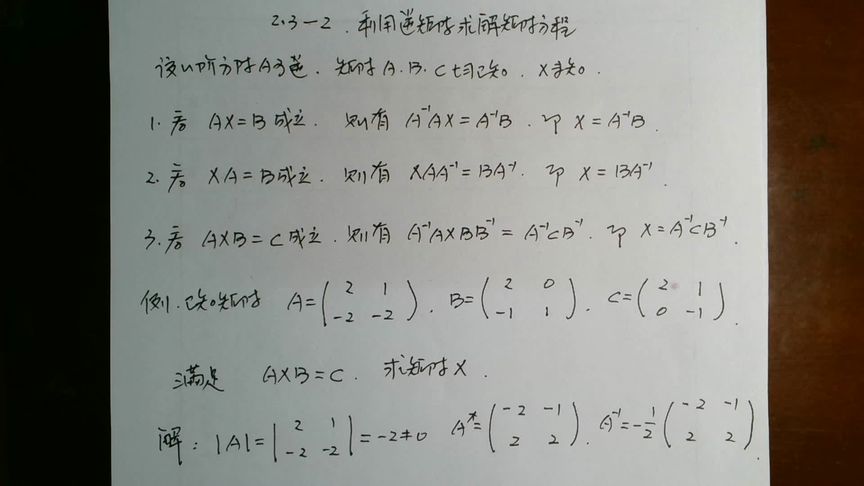 2.3-2. 利用逆矩阵求解矩阵方程
设n阶方阵A可逆. 矩阵A.B.C均已知. X未知.
1. 若 AX=B 成立. 则有 A⁻¹AX=A⁻¹B. 即 X=A⁻¹B.
2. 若 XA=B成立. 则有 XAA⁻¹=BA⁻¹. 即 X=BA⁻¹.
3. 若 AXB=C成立. 则有 A⁻¹AXBB⁻¹=A⁻¹CB⁻¹. 即 X=A⁻¹CB⁻¹.
例1. 已知矩阵 A=(2 1; -2 -2). B=(2 0; -1 1). C=(2 1; 0 -1).
满足 AXB=C. 求矩阵X.
解: |A|=|2 1; -2 -2|=-2≠0 A*=(-2 -1; 2 2). A⁻¹=-1/2(-2 -1; 2 2).